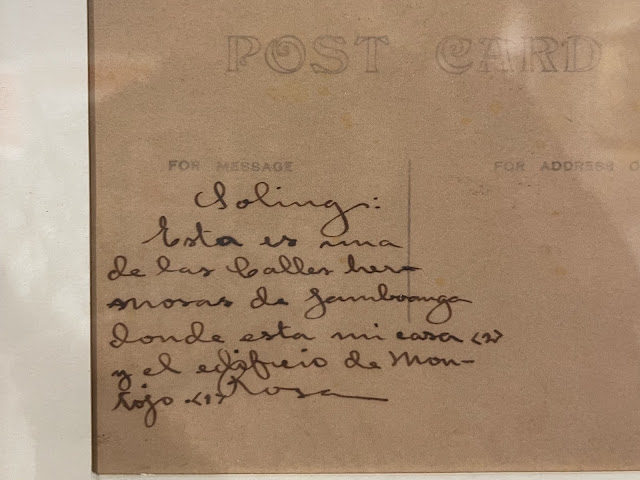 POST CARD
FOR MESSAGE
FOR ADDRESS O
Soling:
Esta es una
de las Calles her-
mosas de Zamboanga
donde esta mi casa <2>
y el edificio de Mon-
tojo <1> Rosa